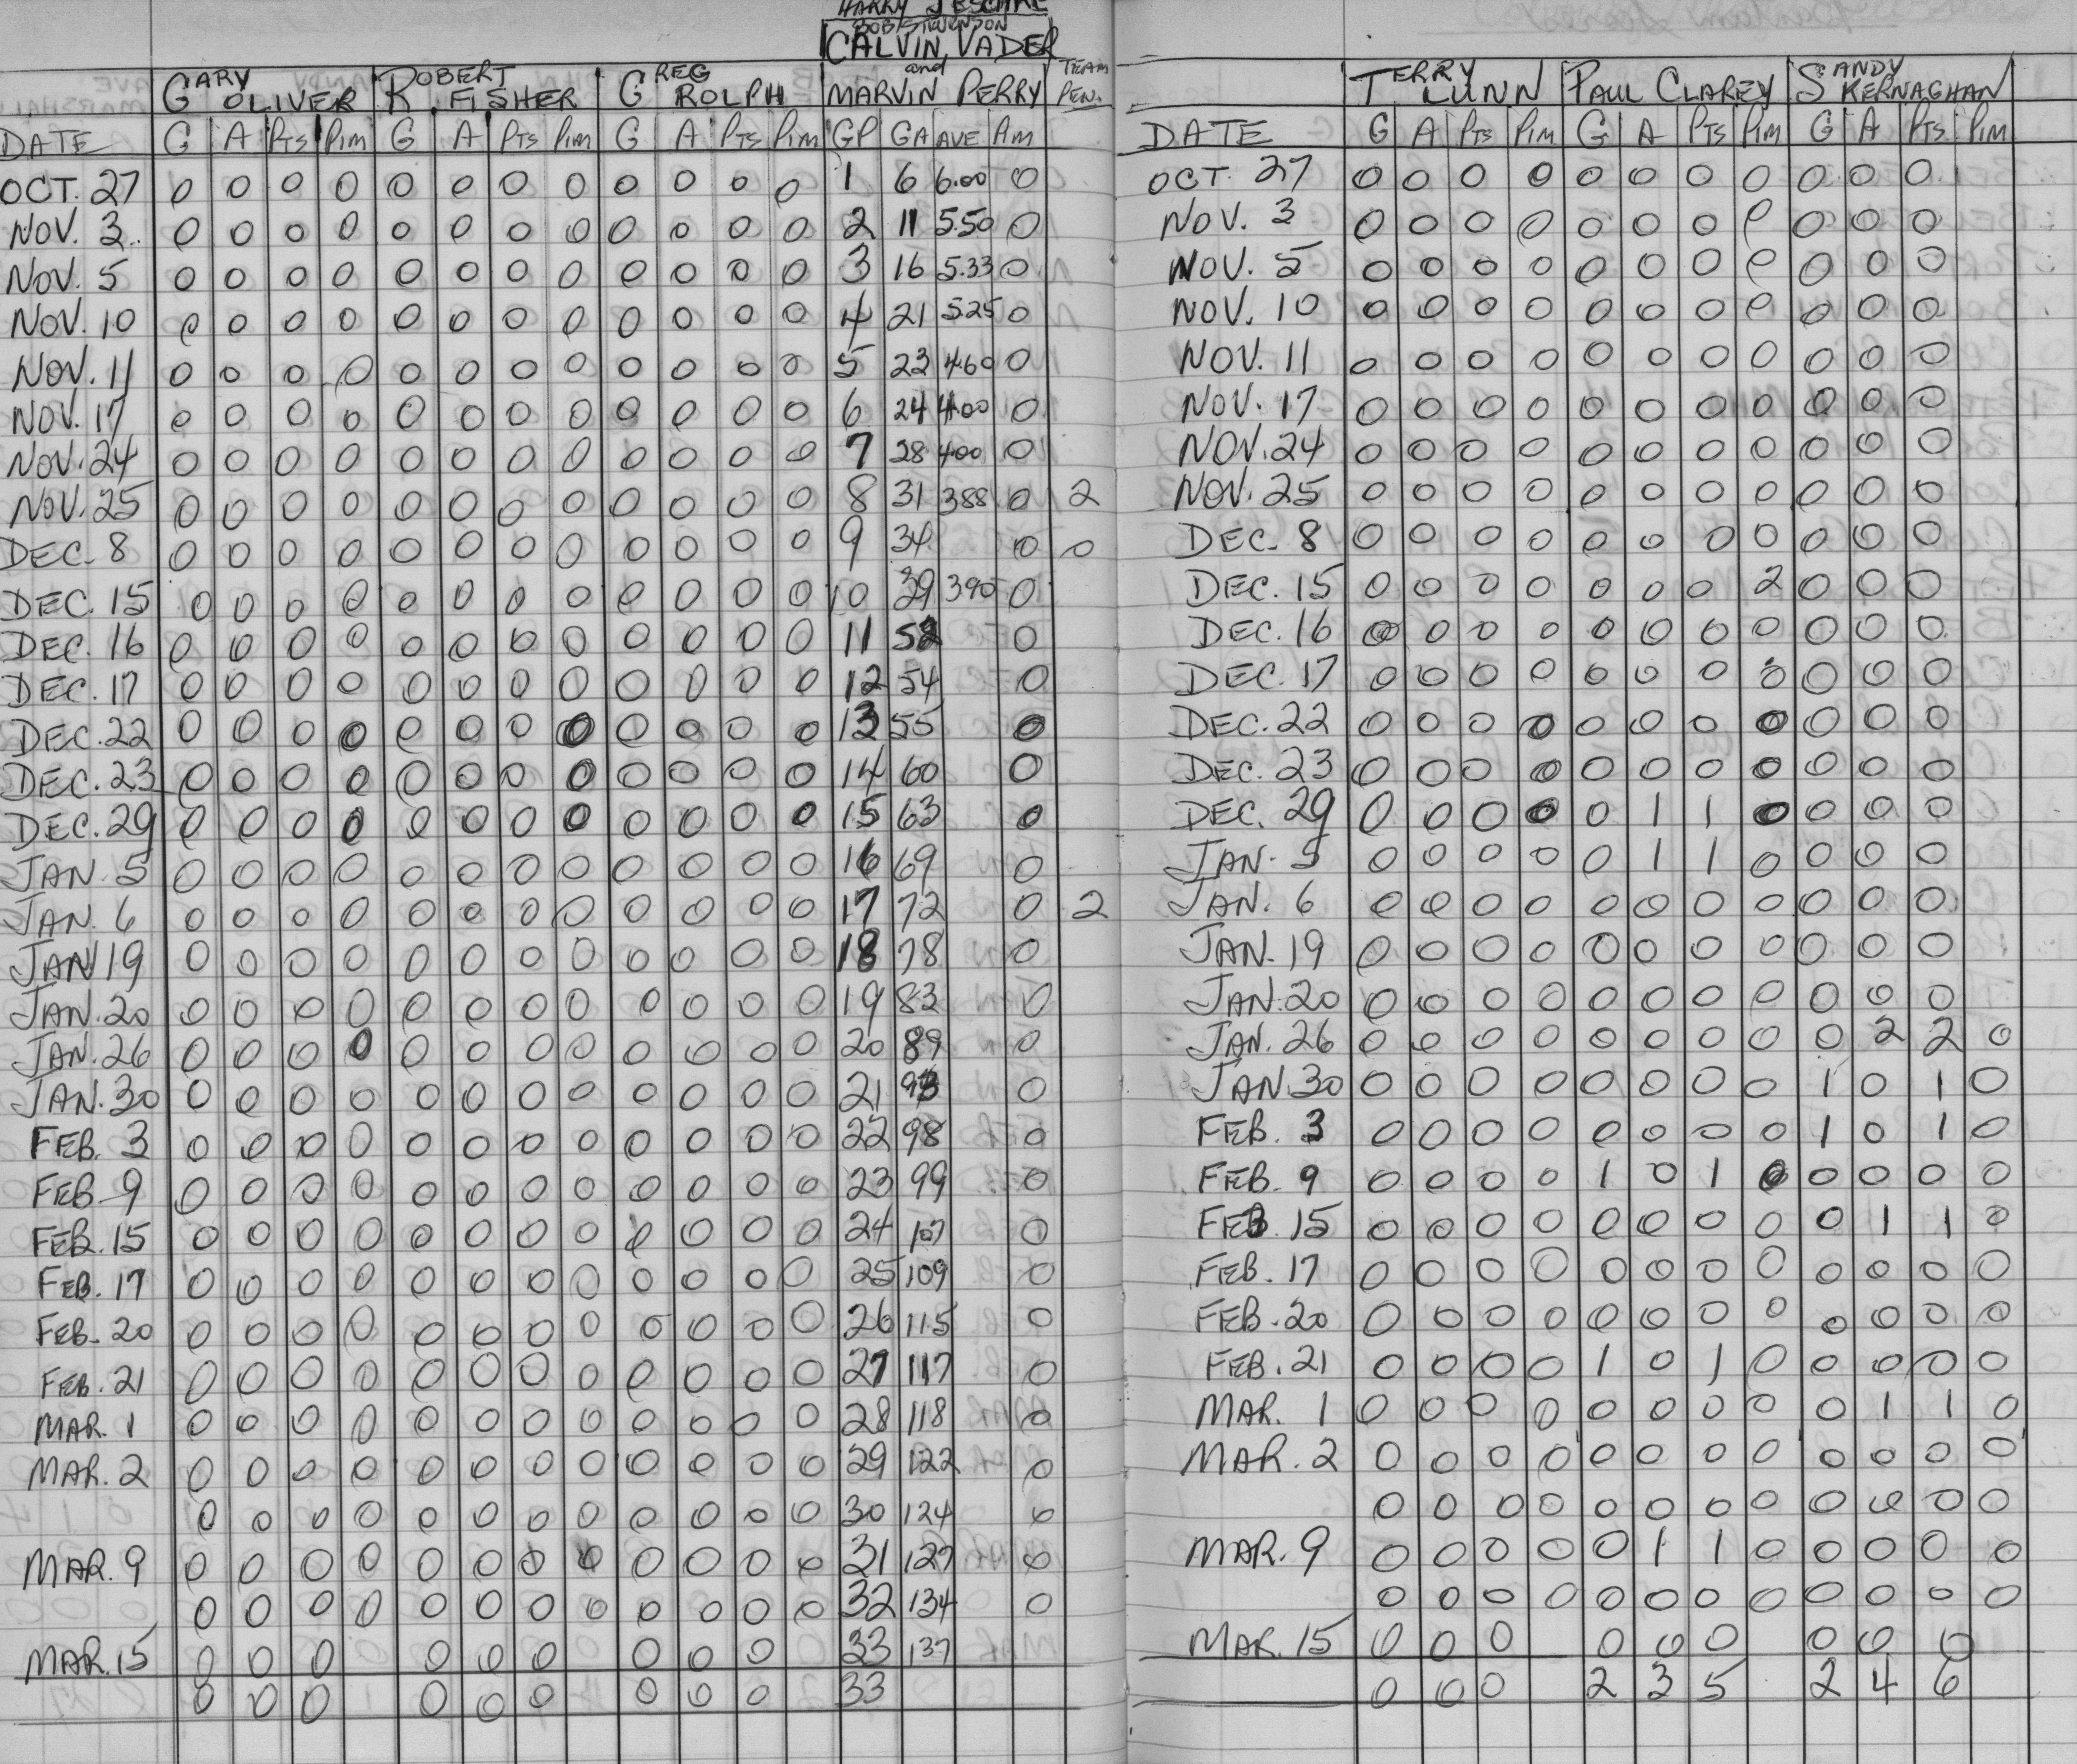 HARRY JESCHKE
BOB STEVENSON
CALVIN VADER
and
GARY OLIVER ROBERT FISHER GREG ROLPH MARVIN PERRY TEAM PEN.
DATE G A PTS PIM G A PTS PIM G A PTS PIM GP GA AVE PIM
OCT. 27 0 0 0 0 0 0 0 0 0 0 0 0 1 6 6.00 0
NOV. 3 0 0 0 0 0 0 0 0 0 0 0 0 2 11 5.50 0
NOV. 5 0 0 0 0 0 0 0 0 0 0 0 0 3 16 5.33 0
NOV. 10 0 0 0 0 0 0 0 0 0 0 0 0 4 21 525 0
NOV. 11 0 0 0 0 0 0 0 0 0 0 0 0 5 23 460 0
NOV. 17 0 0 0 0 0 0 0 0 0 0 0 0 6 24 400 0
NOV. 24 0 0 0 0 0 0 0 0 0 0 0 0 7 28 400 0
NOV. 25 0 0 0 0 0 0 0 0 0 0 0 0 8 31 388 0 2
DEC. 8 0 0 0 0 0 0 0 0 0 0 0 0 9 34 0 0
DEC. 15 0 0 0 0 0 0 0 0 0 0 0 0 10 39 390 0
DEC. 16 0 0 0 0 0 0 0 0 0 0 0 0 11 52 0
DEC. 17 0 0 0 0 0 0 0 0 0 0 0 0 12 54 0
DEC. 22 0 0 0 0 0 0 0 0 0 0 0 0 13 55 0
DEC. 23 0 0 0 0 0 0 0 0 0 0 0 0 14 60 0
DEC. 29 0 0 0 0 0 0 0 0 0 0 0 0 15 63 0
JAN. 5 0 0 0 0 0 0 0 0 0 0 0 0 16 69 0
JAN. 6 0 0 0 0 0 0 0 0 0 0 0 0 17 72 0 2
JAN 19 0 0 0 0 0 0 0 0 0 0 0 0 18 78 0
JAN. 20 0 0 0 0 0 0 0 0 0 0 0 0 19 83 0
JAN. 26 0 0 0 0 0 0 0 0 0 0 0 0 20 89 0
JAN. 30 0 0 0 0 0 0 0 0 0 0 0 0 21 93 0
FEB. 3 0 0 0 0 0 0 0 0 0 0 0 0 22 98 0
FEB. 9 0 0 0 0 0 0 0 0 0 0 0 0 23 99 0
FEB. 15 0 0 0 0 0 0 0 0 0 0 0 0 24 107 0
FEB. 17 0 0 0 0 0 0 0 0 0 0 0 0 25 109 0
FEB. 20 0 0 0 0 0 0 0 0 0 0 0 0 26 115 0
FEB. 21 0 0 0 0 0 0 0 0 0 0 0 0 27 117 0
MAR. 1 0 0 0 0 0 0 0 0 0 0 0 0 28 118 0
MAR. 2 0 0 0 0 0 0 0 0 0 0 0 0 29 122 0
0 0 0 0 0 0 0 0 0 0 0 0 30 124 0
MAR. 9 0 0 0 0 0 0 0 0 0 0 0 0 31 127 0
0 0 0 0 0 0 0 0 0 0 0 0 32 134 0
MAR. 15 0 0 0 0 0 0 0 0 0 33 137
0 0 0 0 0 0 0 0 0 33
TERRY LUNN PAUL CLAREY SANDY KERNAGHAN
DATE G A PTS PIM G A PTS PIM G A PTS PIM
OCT. 27 0 0 0 0 0 0 0 0 0 0 0
NOV. 3 0 0 0 0 0 0 0 0 0 0 0
NOV. 5 0 0 0 0 0 0 0 0 0 0 0
NOV. 10 0 0 0 0 0 0 0 0 0 0 0
NOV. 11 0 0 0 0 0 0 0 0 0 0 0
NOV. 17 0 0 0 0 0 0 0 0 0 0 0
NOV. 24 0 0 0 0 0 0 0 0 0 0 0
NOV. 25 0 0 0 0 0 0 0 0 0 0 0
DEC. 8 0 0 0 0 0 0 0 0 0 0 0
DEC. 15 0 0 0 0 0 0 0 2 0 0 0
DEC. 16 0 0 0 0 0 0 0 0 0 0 0
DEC. 17 0 0 0 0 0 0 0 0 0 0 0
DEC. 22 0 0 0 0 0 0 0 0 0 0 0
DEC. 23 0 0 0 0 0 0 0 0 0 0 0
DEC. 29 0 0 0 0 0 1 1 0 0 0 0
JAN. 5 0 0 0 0 0 1 1 0 0 0 0
JAN. 6 0 0 0 0 0 0 0 0 0 0 0
JAN. 19 0 0 0 0 0 0 0 0 0 0 0
JAN. 20 0 0 0 0 0 0 0 0 0 0 0
JAN. 26 0 0 0 0 0 0 0 0 0 2 2 0
JAN. 30 0 0 0 0 0 0 0 0 1 0 1 0
FEB. 3 0 0 0 0 0 0 0 0 1 0 1 0
FEB. 9 0 0 0 0 1 0 1 0 0 0 0 0
FEB 15 0 0 0 0 0 0 0 0 0 1 1 0
FEB. 17 0 0 0 0 0 0 0 0 0 0 0 0
FEB. 20 0 0 0 0 0 0 0 0 0 0 0 0
FEB. 21 0 0 0 0 1 0 1 0 0 0 0 0
MAR. 1 0 0 0 0 0 0 0 0 0 1 1 0
MAR. 2 0 0 0 0 0 0 0 0 0 0 0 0
0 0 0 0 0 0 0 0 0 0 0 0
MAR. 9 0 0 0 0 0 1 1 0 0 0 0 0
0 0 0 0 0 0 0 0 0 0 0 0
MAR. 15 0 0 0 0 0 0 0 0 0
0 0 0 2 3 5 2 4 6